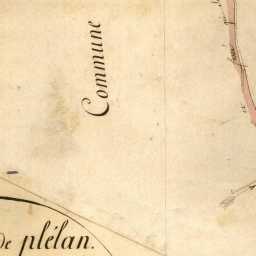 Commune
De plélan.